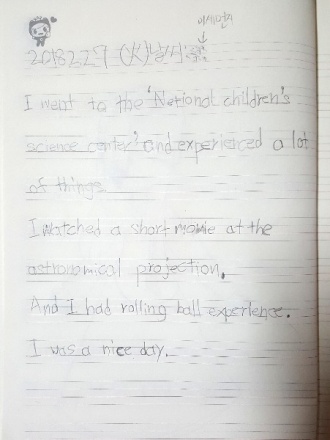 미세먼지
2018.2.27 (火) 날씨:
I went to the 'National children's
science center' and experienced a lot
of things
I watched a short movie at the
astronomical projection.
And I had rolling ball experience.
I was a nice day.